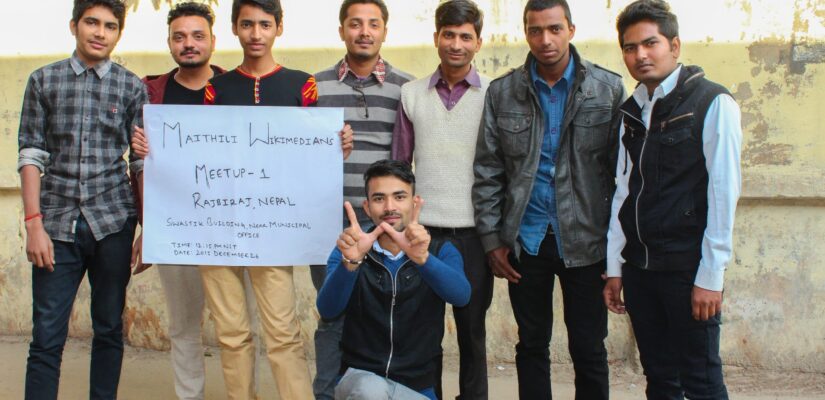 MAITHILI WIKIMEDIANS
MEETUP-1
RAJBIRAJ, NEPAL
SWASTIK BUILDING, NEAR MUNICIPAL
OFFICE
TIME: 12:15 PM NST
DATE: 2015 DECEMBER 26